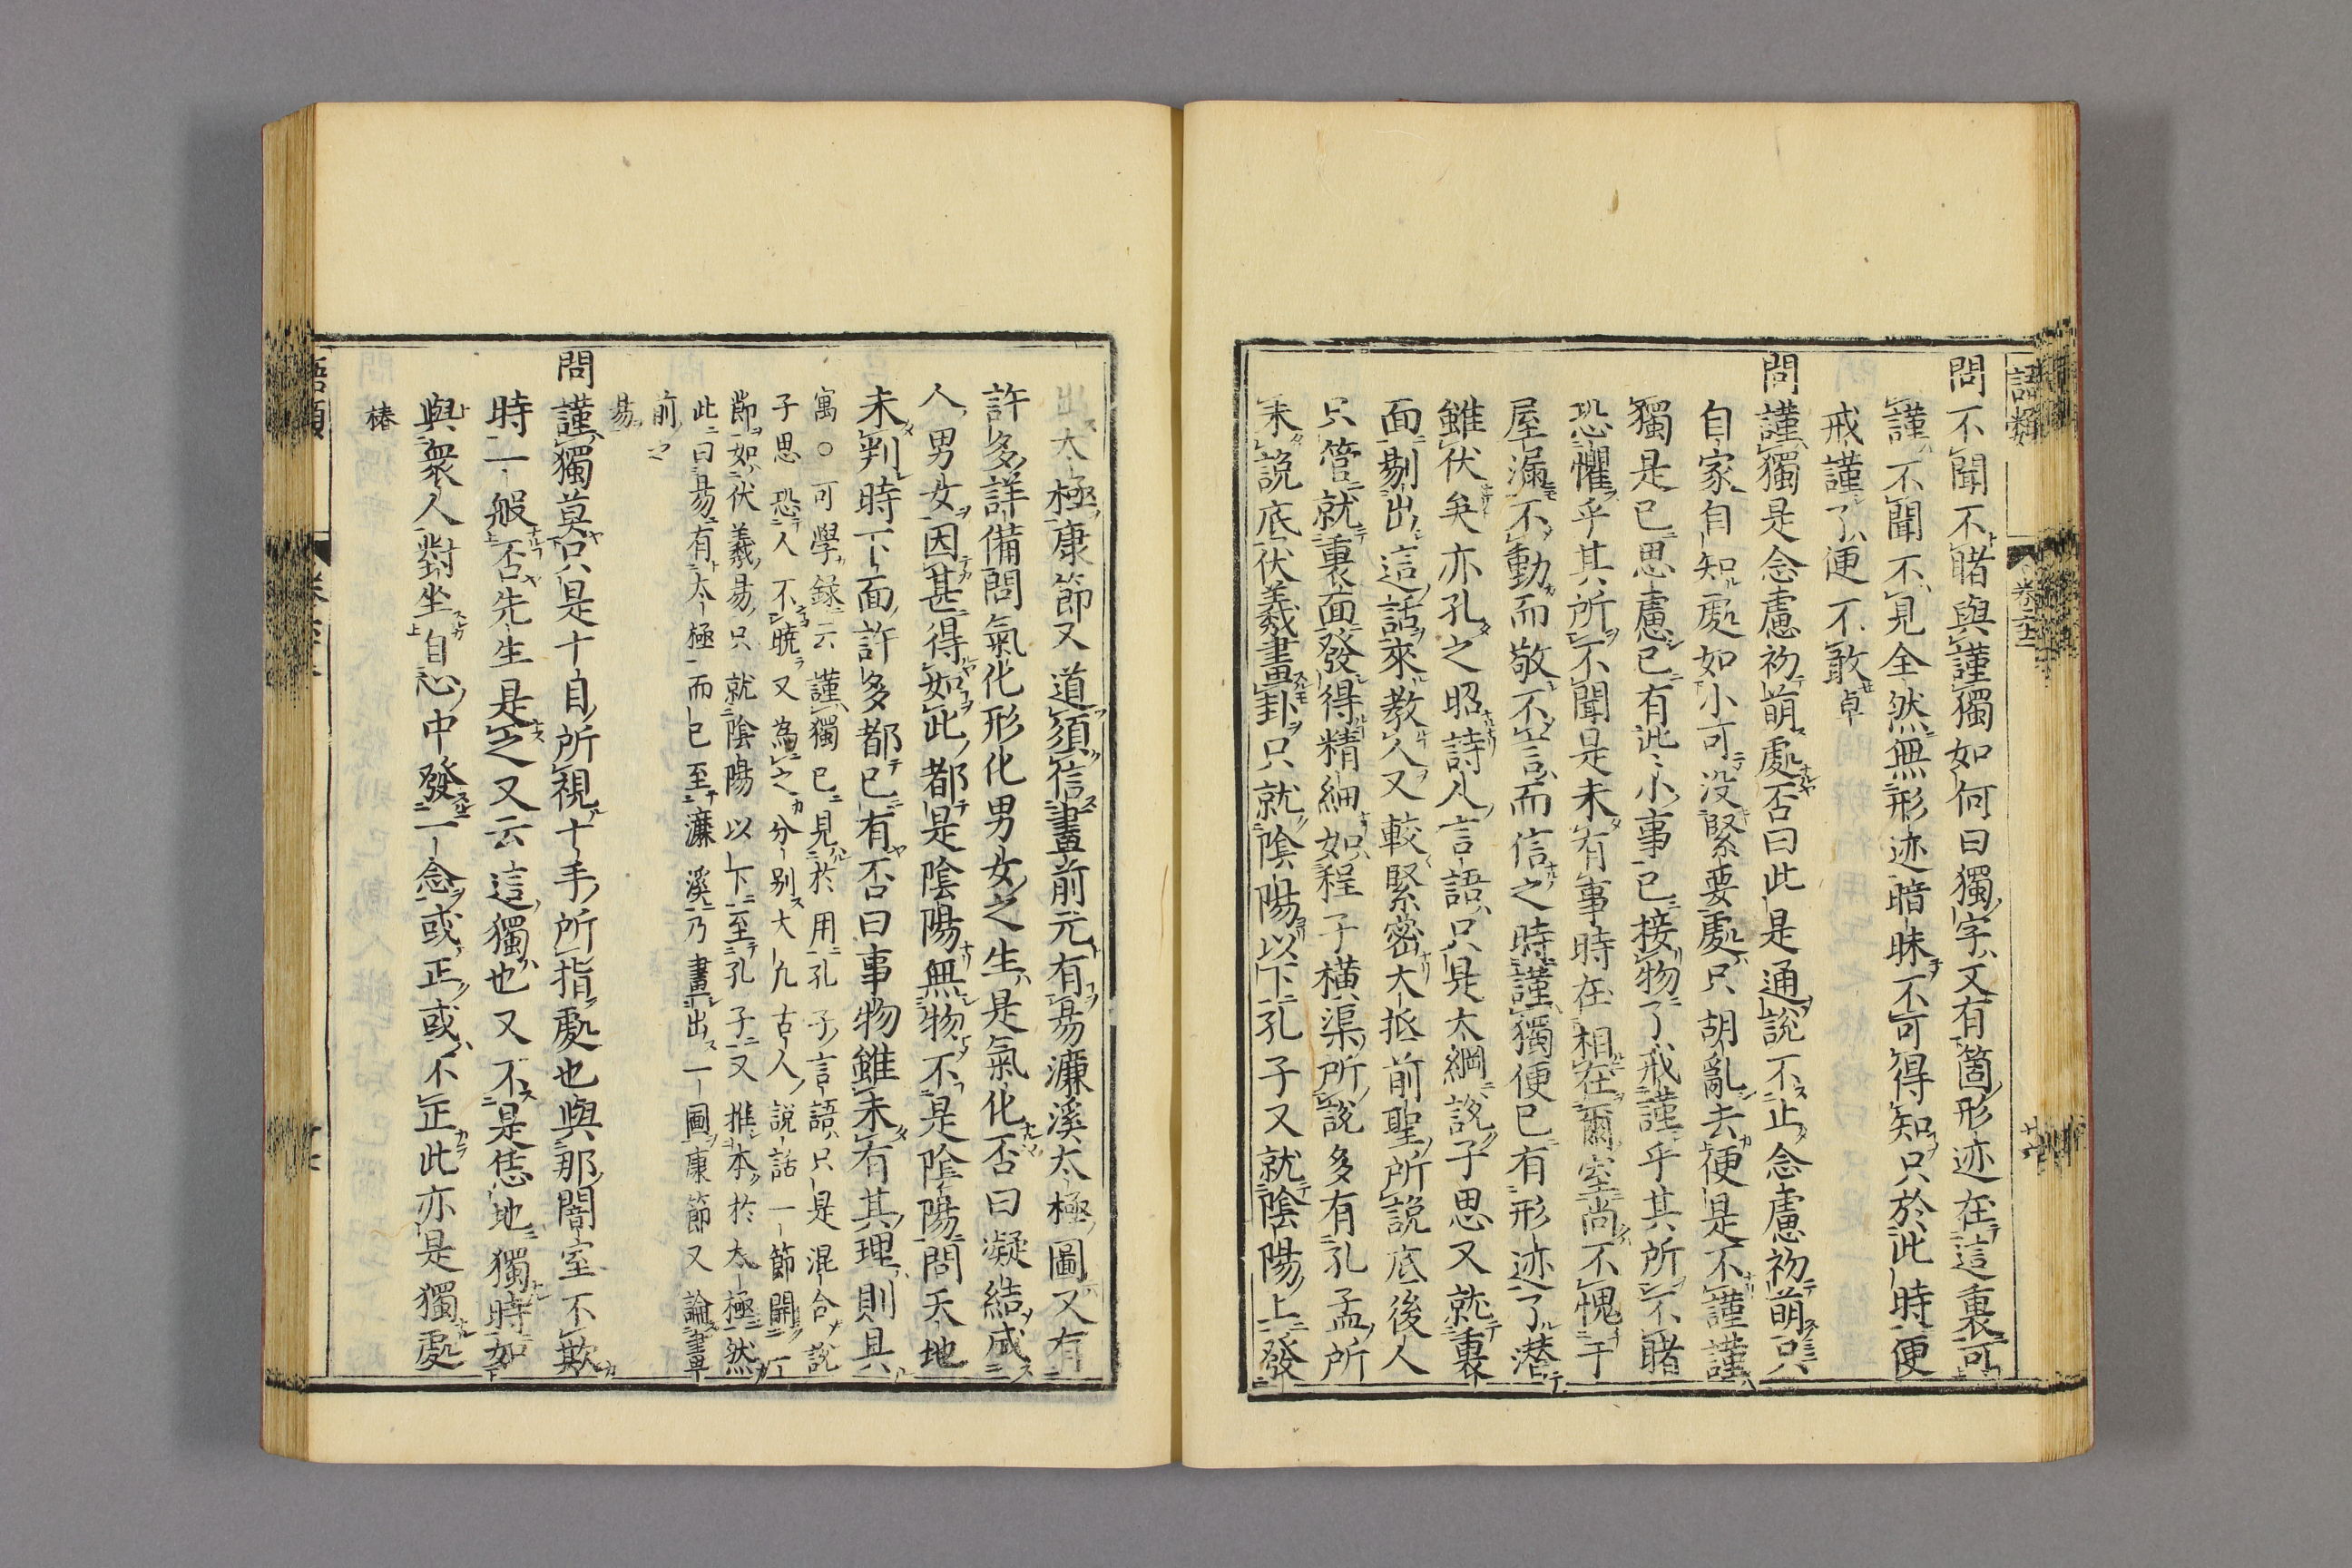 語類
卷六十二
問不聞不睹與謹獨如何曰獨字又有箇形迹在這裏可
謹不聞不見全然無形迹暗昧不可得知只於此時便
戒謹了便不敢卓
問謹獨是念慮初萌處否曰此是通說不止念慮初萌只
自家自知處如小可没緊要處只胡亂去便是不謹謹
獨是已思慮已有些小事已接物了戒謹乎其所不睹
恐懼乎其所不聞是未有事時在相在爾室尚不愧于
屋漏不動而敬不言而信之時謹獨便已有形迹了潜
雖伏矣亦孔之昭詩人言語只是大綱說子思又就裏
面剔出這話來教人又較緊密大抵前聖所說底後人
只管就裏面發得精細如程子橫渠所說多有孔孟所
未說底伏羲畫卦只就陰陽以下孔子又就陰陽上發
出太極康節又道須信畫前元有昜濂溪太極圖又有
許多詳備問氣化形化男女之生是氣化否曰凝結成
人男女因甚得如此都是陰陽無物不是陰陽問天地
未判時下面許多都已有否曰事物雖未有其理則具
寓○可學録云謹獨已見於用孔子言語只是混合說
子思恐人不曉又為之分别大凡古人說話一節開一
節如伏羲昜只就陰陽以下至孔子又推本於太極然
此曰昜有太極而已至濂溪乃畫出一圖康節又論畫
前
昜
問謹獨莫只是十目所視十手所指處也與那闇室不欺
時一般否先生是之又云這獨也又不是恁地獨時如
與衆人對坐自心中發一念或正或不正此亦是獨處
椿
語類